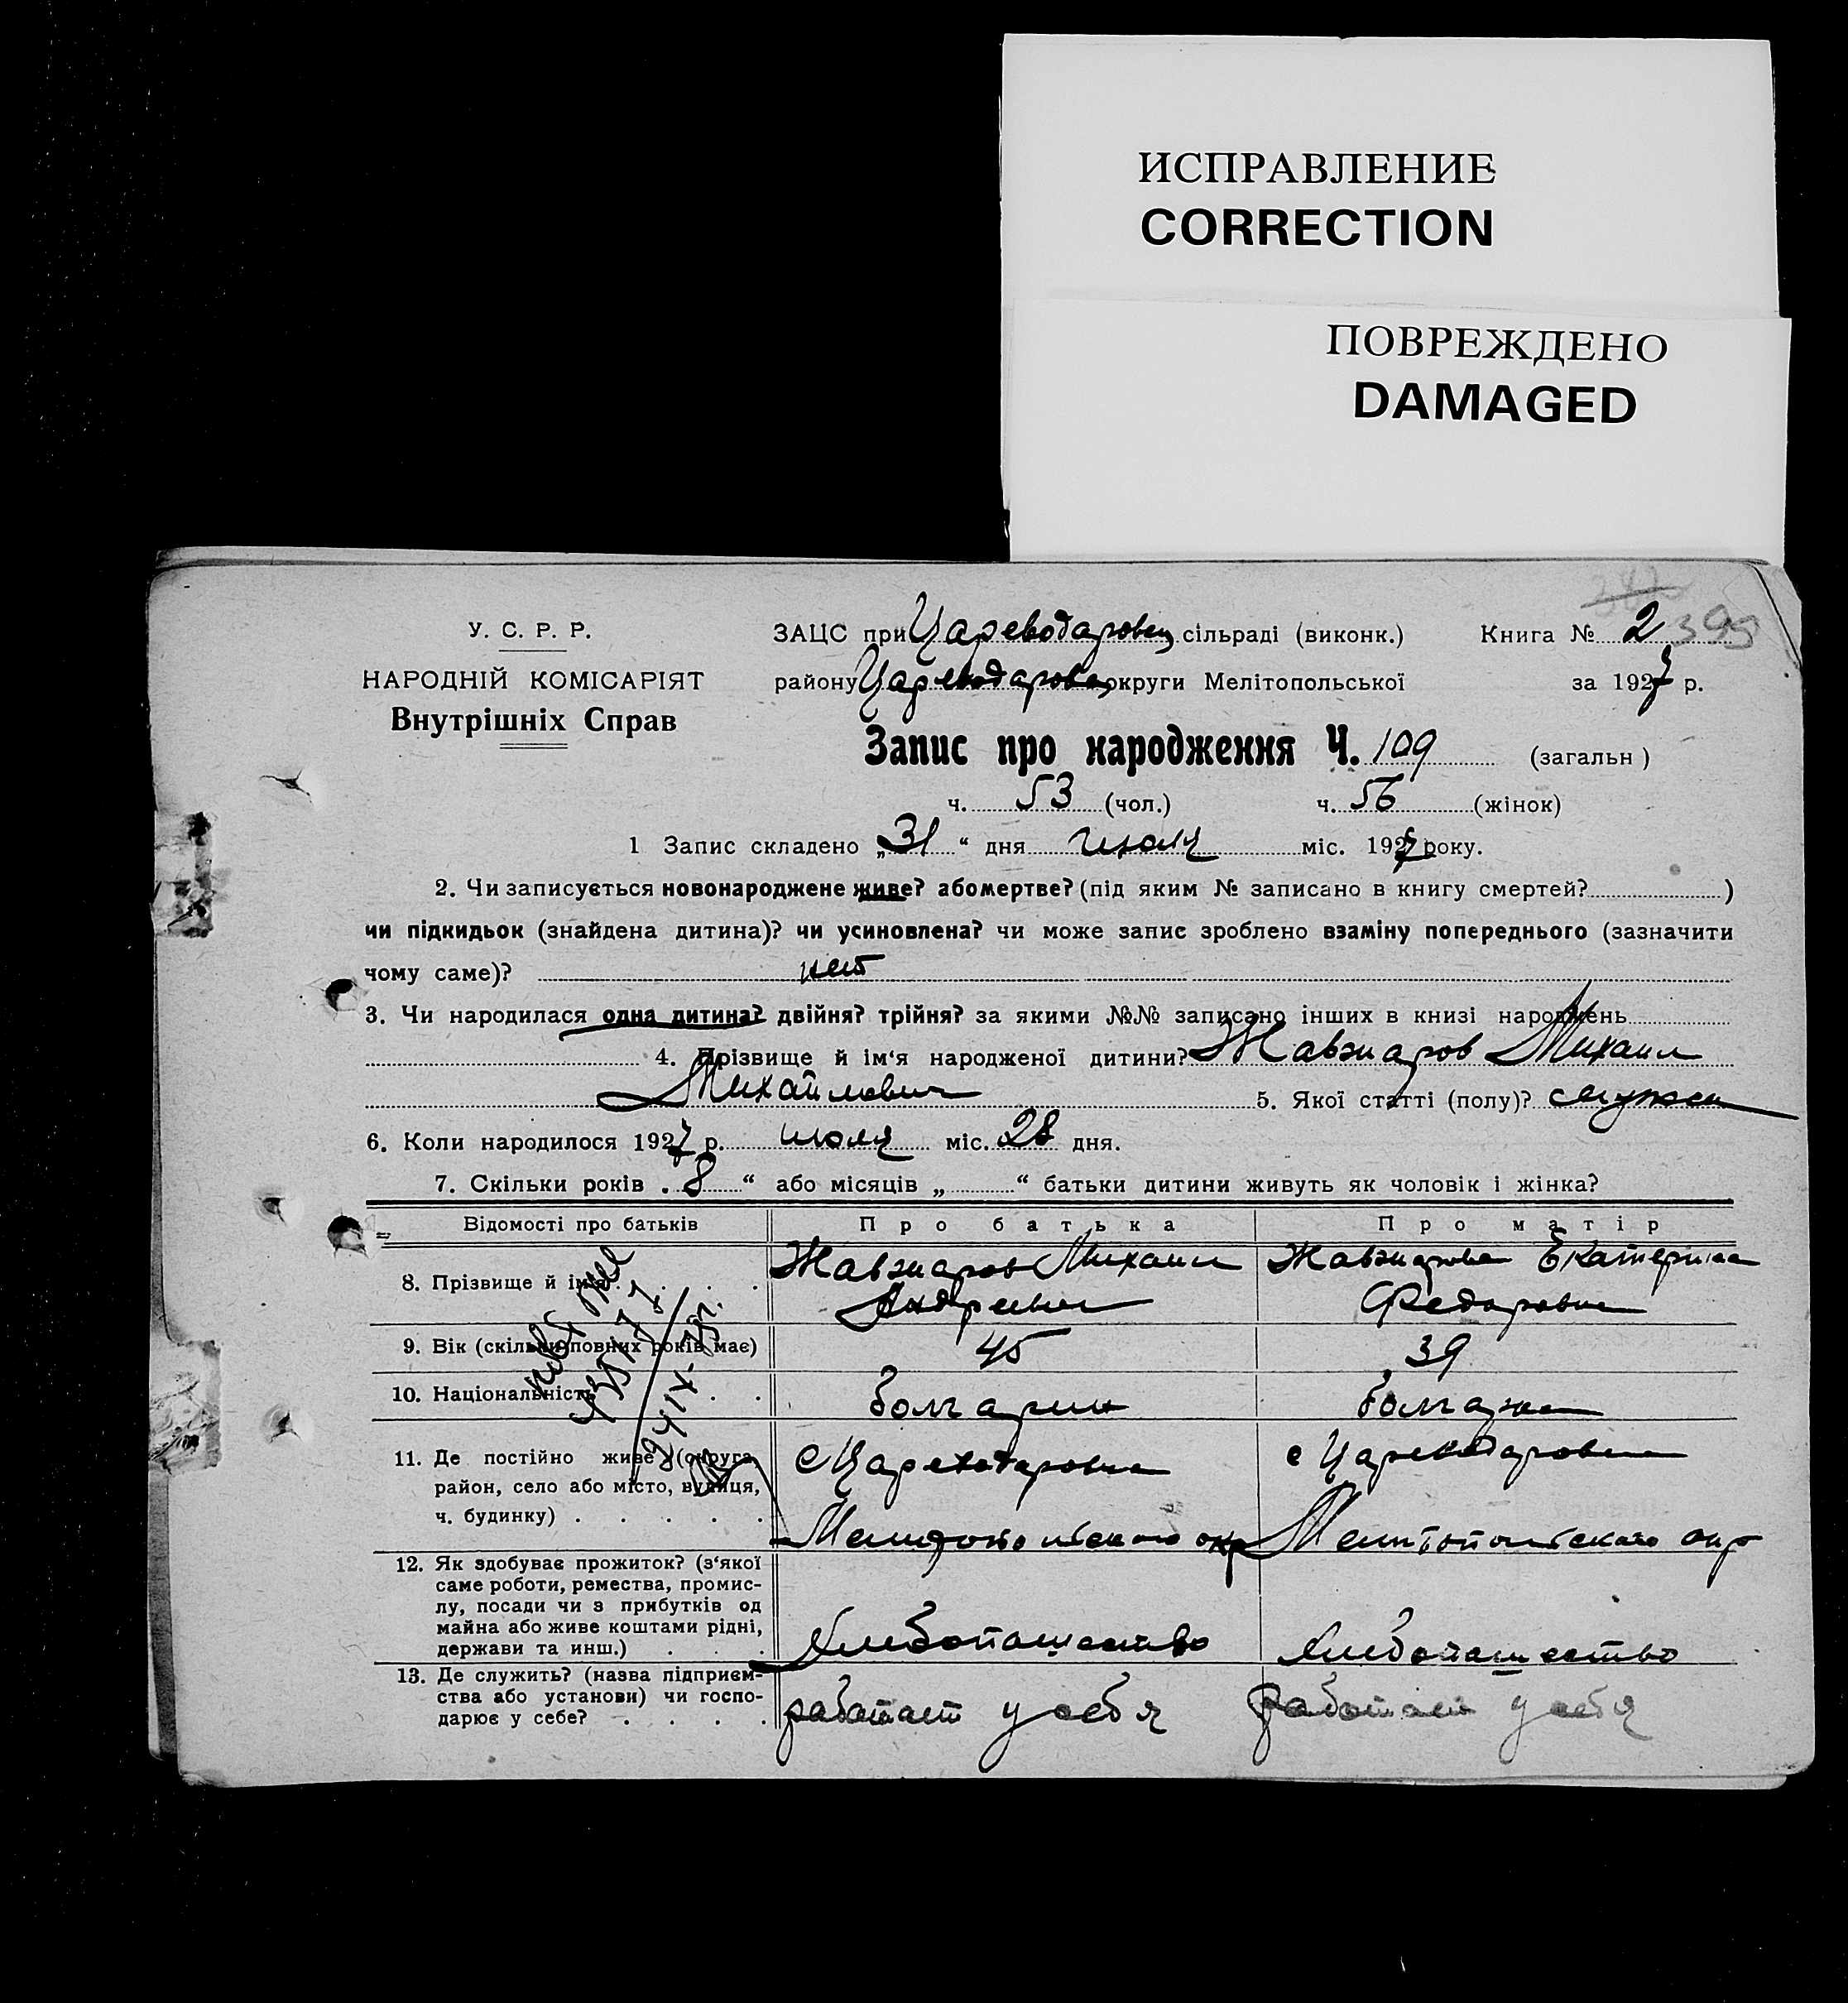 ИСПРАВЛЕНИЕ
CORRECTION
ПОВРЕЖДЕНО
DAMAGED
395
У. С. Р. Р.
НАРОДНІЙ КОМІСАРІЯТ
Внутрішніх Справ
ЗАЦС при Цареводаровск сільраді (виконк.) Книга № 2
району Цареводаровск округи Мелітопольської за 1927 р.
Запис про народження Ч. 109 (загальн)
ч. 53 (чол.) ч. 56 (жінок)
1 Запис складено „31“ дня июля міс. 1927 року.
2. Чи записується новонароджене живе? або мертве? (під яким № записано в книгу смертей? )
чи підкидьок (знайдена дитина)? чи усиновлена? чи може запис зроблено взаміну попереднього (зазначити
чому саме)? нет
3. Чи народилася одна дитина? двійня? трійня? за якими №№ записано інших в книзі народжень
4. Прізвище й ім‘я народженої дитини? Жавжаров Михаил
Михайлович 5. Якої статті (полу)? мужск
6. Коли народилося 1927 р. июля міс. 28 дня.
7. Скільки років „8“ або місяців „ “ батьки дитини живуть як чоловік і жінка?
Відомості про батьків Про батька Про матір
8. Прізвище й ім‘я Жавжаров Михаил Андреевич Жавжарова Екатерина Федоровна
9. Вік (скільки повних років має) 45 39
10. Національність болгарин болгарка
11. Де постійно живе (округа,
район, село або місто, вулиця,
ч. будинку)
с Цареводаровка
Мелитопольского окр
с Цареводаровка
Мелитопольского окр
12. Як здобуває прожиток? (з‘якої
саме роботи, ремества, промис-
лу, посади чи з прибутків од
майна або живе коштами рідні,
держави та инш.)
хлебопашество хлебопашество
13. Де служить? (назва підприєм-
ства або установи) чи госпо-
дарює у себе?
работает у себя работает у себя